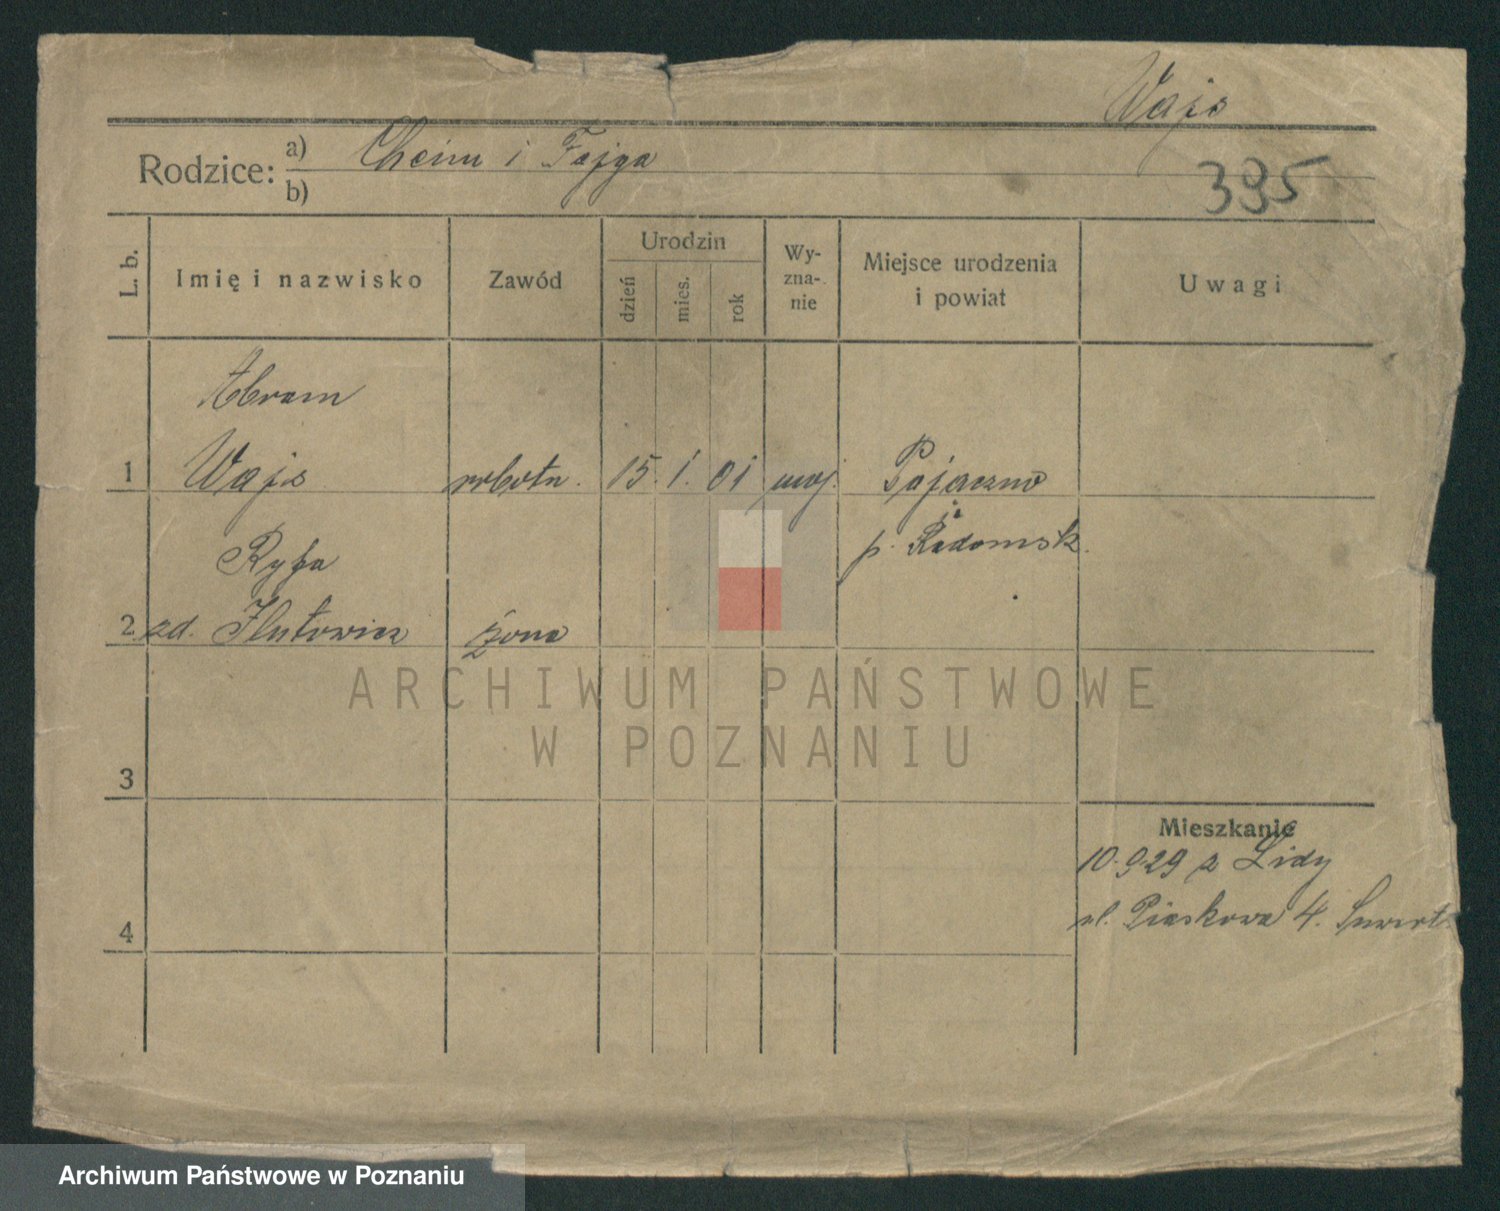 Wajs
Rodzice: a) Chaim i Fajga
b)
395
L. b. Imię i nazwisko Zawód Urodzin dzień mies. rok Wy-zna-nie Miejsce urodzenia i powiat Uwagi
Abram
1 Wajs robotn. 15. 1. 01 moj. Pajęczno
p. Radomsk.
Ryfa
2 zd. Zlutowicz żona
ARCHIWUM PAŃSTWOWE
W POZNANIU
3
Mieszkanie
10.9.29 z Lidy
4 ul. Piaskowa 4.
Archiwum Państwowe w Poznaniu